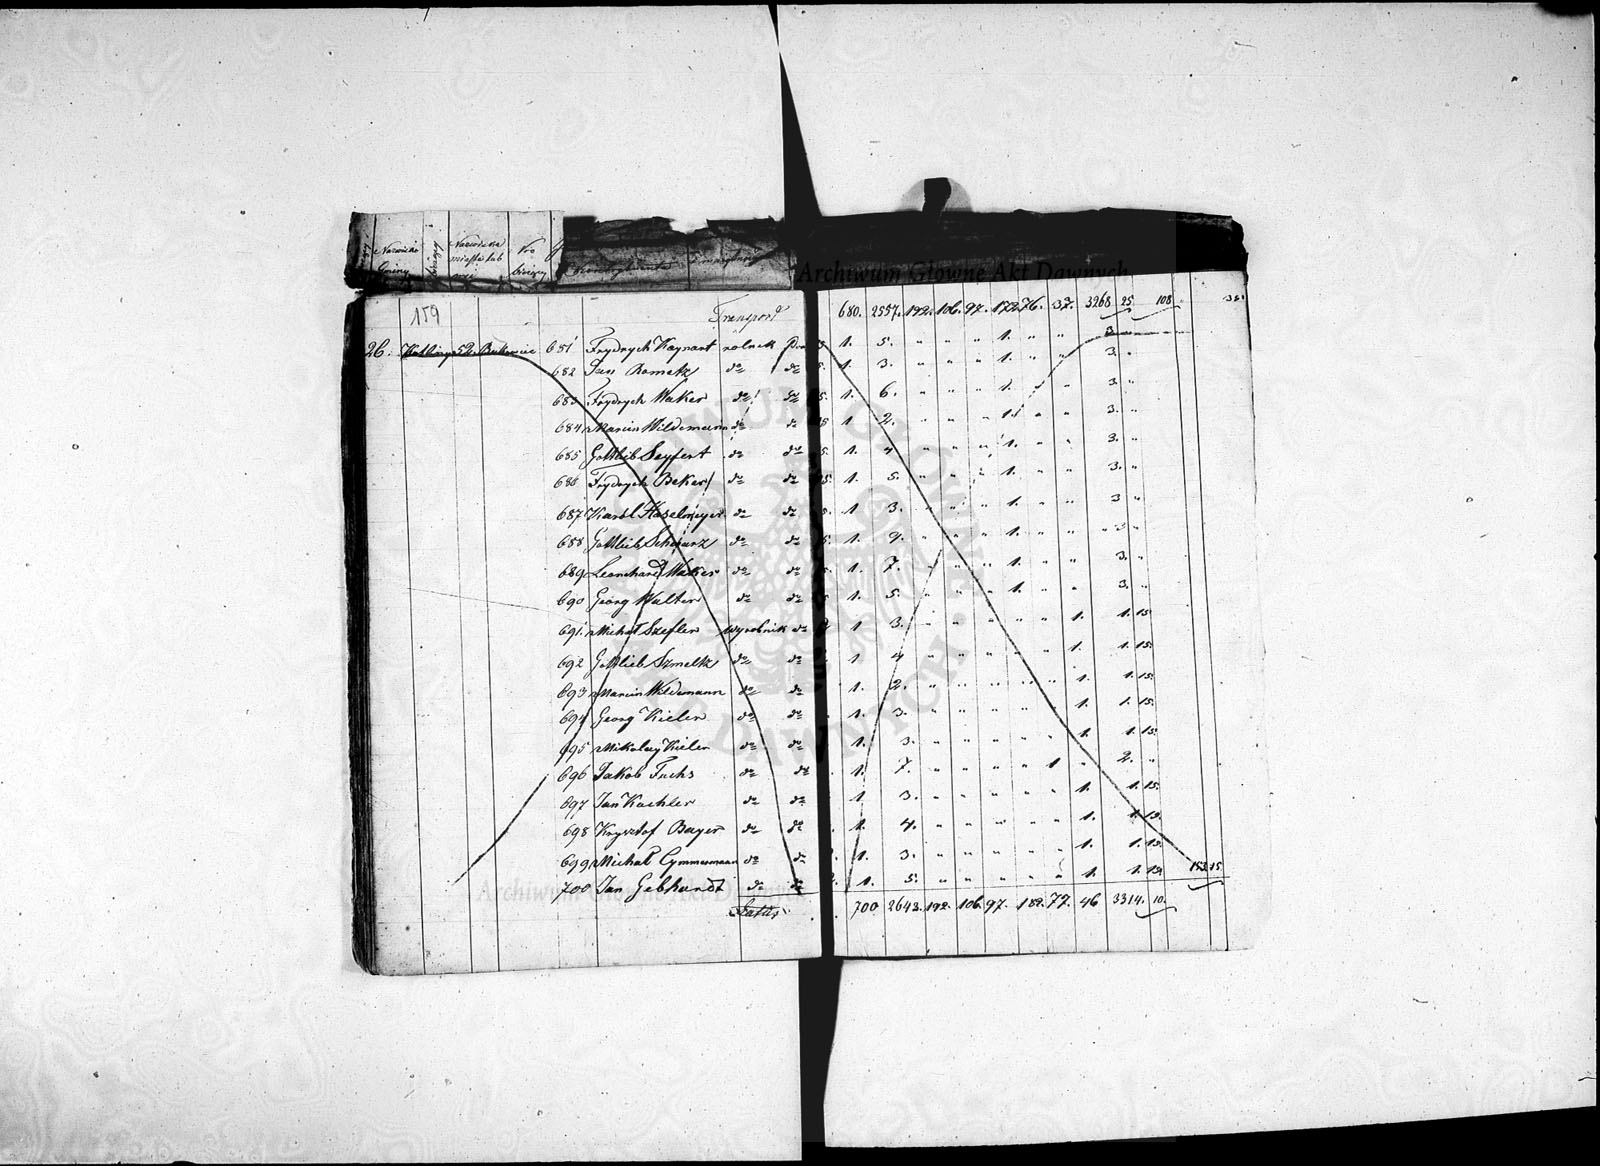 Nazwisko Gminy Nazwiska miasta lub wsi
Archiwum Głowne Akt Dawnych
159
Transport 680. 2557. 192. 106. 97. 172. 76. 37. 3268 25 108
26. 52. Bukowiec 681 Frydrych Kaynart rolnik 1. 5. " " " " 1. " " 3. "
682 Jan Rometz do do 1. 3. " " " " 1. " " 3. "
683 Frydrych Waker do do 5. 1. 6. " " " " 1. " " 3. "
684 Marcin Wildemann do do 1 2. " " " " 1. " " 3. "
685 Gottlib Seyfert do do 5. 1. 4 " " " " 1. " " 3. "
686 Frydrych Beker do do 5. 1. 5. " " " " 1. " " 3. "
687 Karol Haselmeyer do do 1 3. " " " " 1. " " 3 "
688 Gottlieb Schwarz do do 1. 4. " " " " 1. " " 3 "
689 Leonchard Waker do do 1. 7. " " " " 1. " " 3. "
690 Georg Walter do do 1. 5. " " " " 1. " " 3. "
691. Michał Szefler wyrobnik do 1 3. " " " " " " 1. 1. 15.
692 Gottlieb Szmeltz do do 1 4 " " " " " " 1. 1. 15.
693 Marcin Wildemann do do 1. 2. " " " " " " 1. 1. 15.
694 Georg Kieler do do 1. 3. " " " " " " 1. 1. 15.
695 Mikołay Kieler do do 1. 3. " " " " " " 1. 1. 15.
696 Jakob Fuchs do do 1. 7. " " " " " 1 " 2. "
697 Jan Kachler do do 1 3. " " " " " " 1. 1. 15.
698 Krysztof Bayer do do 1. 4. " " " " " " 1. 1. 15.
699 Michał Cymmermann do do 1. 3. " " " " " " 1. 1. 15.
700 Jan Gebhardt do do 2. 1. 5. " " " " " " 1. 1. 15 153. 15.
Archiwum Głowne Akt Dawnych
Latus 700 2643. 192. 106. 97. 182. 77. 46 3314. 10.